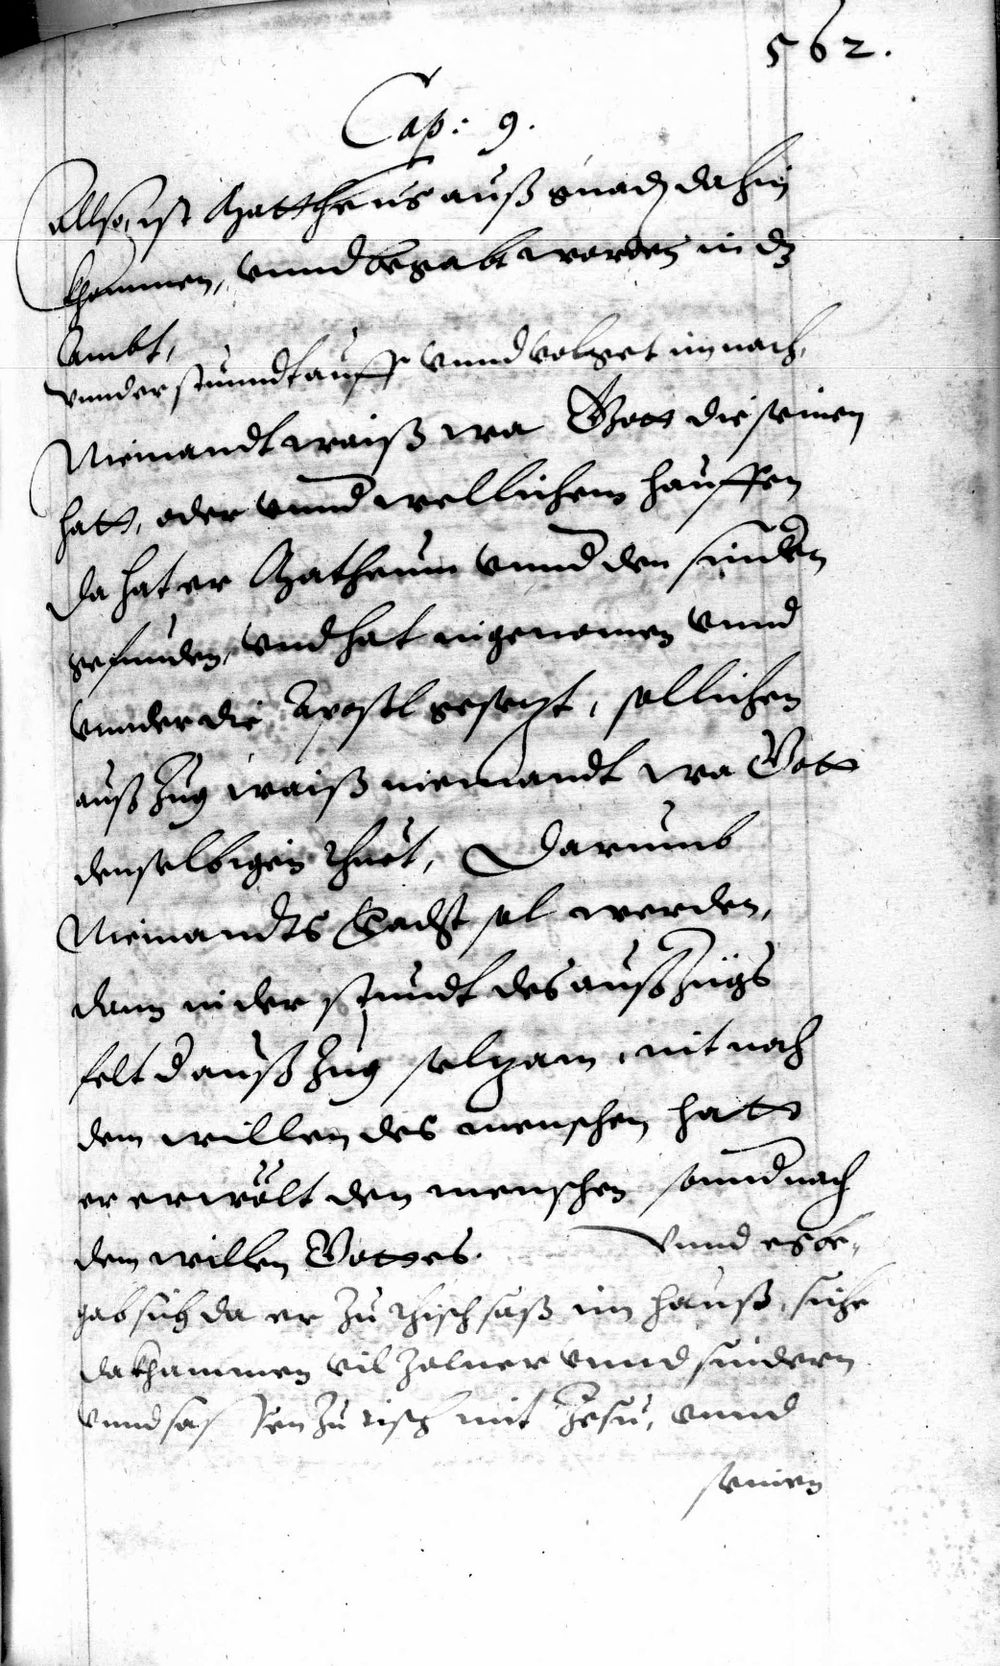 562.
Cap: 9.
Allso ist Mattheus auß gnad dahin
khommen, vnnd begabt worden in dz
Ambt,
vnnder stuendt auff vnnd volget im nach,
Niemandt waiß wa Gott die seinen
hatt, oder vnnd wellichem hauffen
da hat er Matheum vnnd den sünden
gefunden, vnd hat in genomen vnnd
vnnder die Apostl gesetzt, sollichen
auß Zug waiß niemandt wa Gott
denselbigen thuet, Darumb
Niemandts sol werden,
dann in der stundt des auß Zugs
felt d auß Zug selzam, nit nach
dem willen des menschen hatt
er erwölt den menschen sonnd nach
dem willen Gottes. Vnnd es be,
gab sich da er zu thisch saß im hauß, sihe
da khammen vil Zolner vnnd sündern
vnnd sassen zu tisch mit Jesu, vnnd
seinen